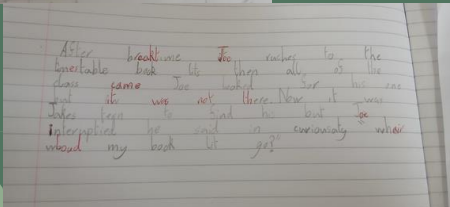 After breaktime Joe rushes to the
timestable book lts then all of the
class came Joe looked for his one
but it was not there. Now it was
Jakes tern to find his but Joe
interruptied he said n curiousaty whair
woud my book lt go?